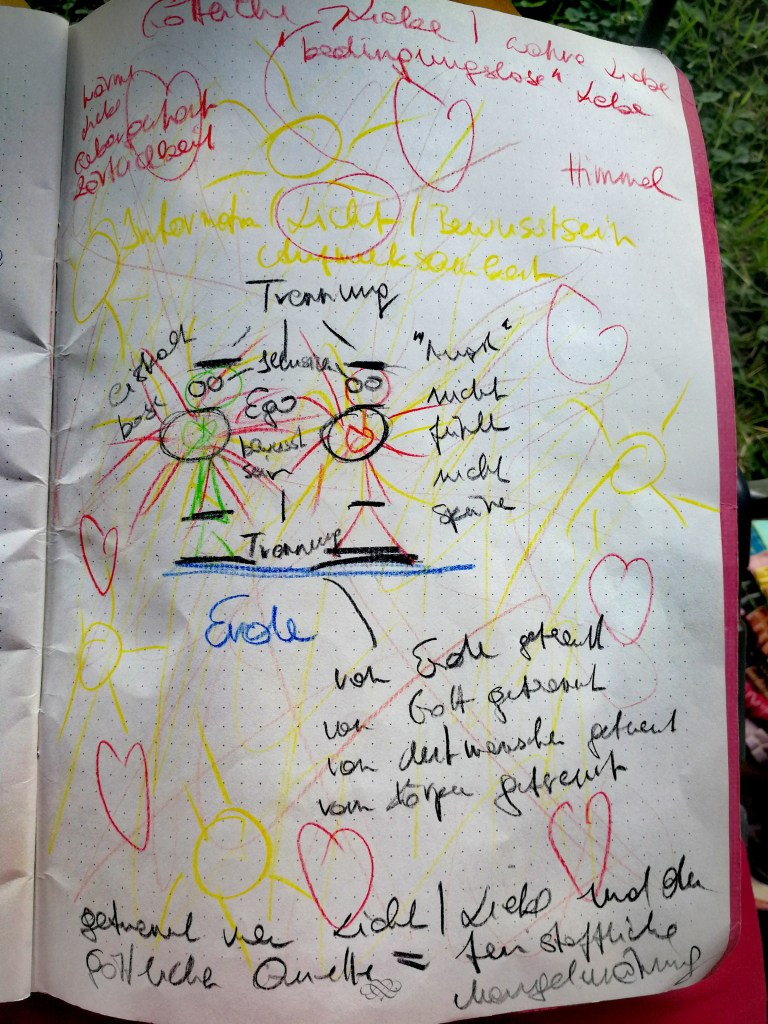 Göttliche Liebe / wahre Liebe
"bedingungslose" Liebe
Wärme
Liebe
Geborgenheit
Zärtlichkeit
Himmel
Information / Licht / Bewusstsein
Aufmerksamkeit
Trennung
eiskalt
böse
Ego
bewusst
sein
nicht
fühlt
nicht
Trennung
Erde
von Erde getrennt
von Gott getrennt
von getrennt
vom Körper getrennt
getrennt von Licht / Liebe und der
göttlichen Quelle = feinstoffliche
Mangelnahrung